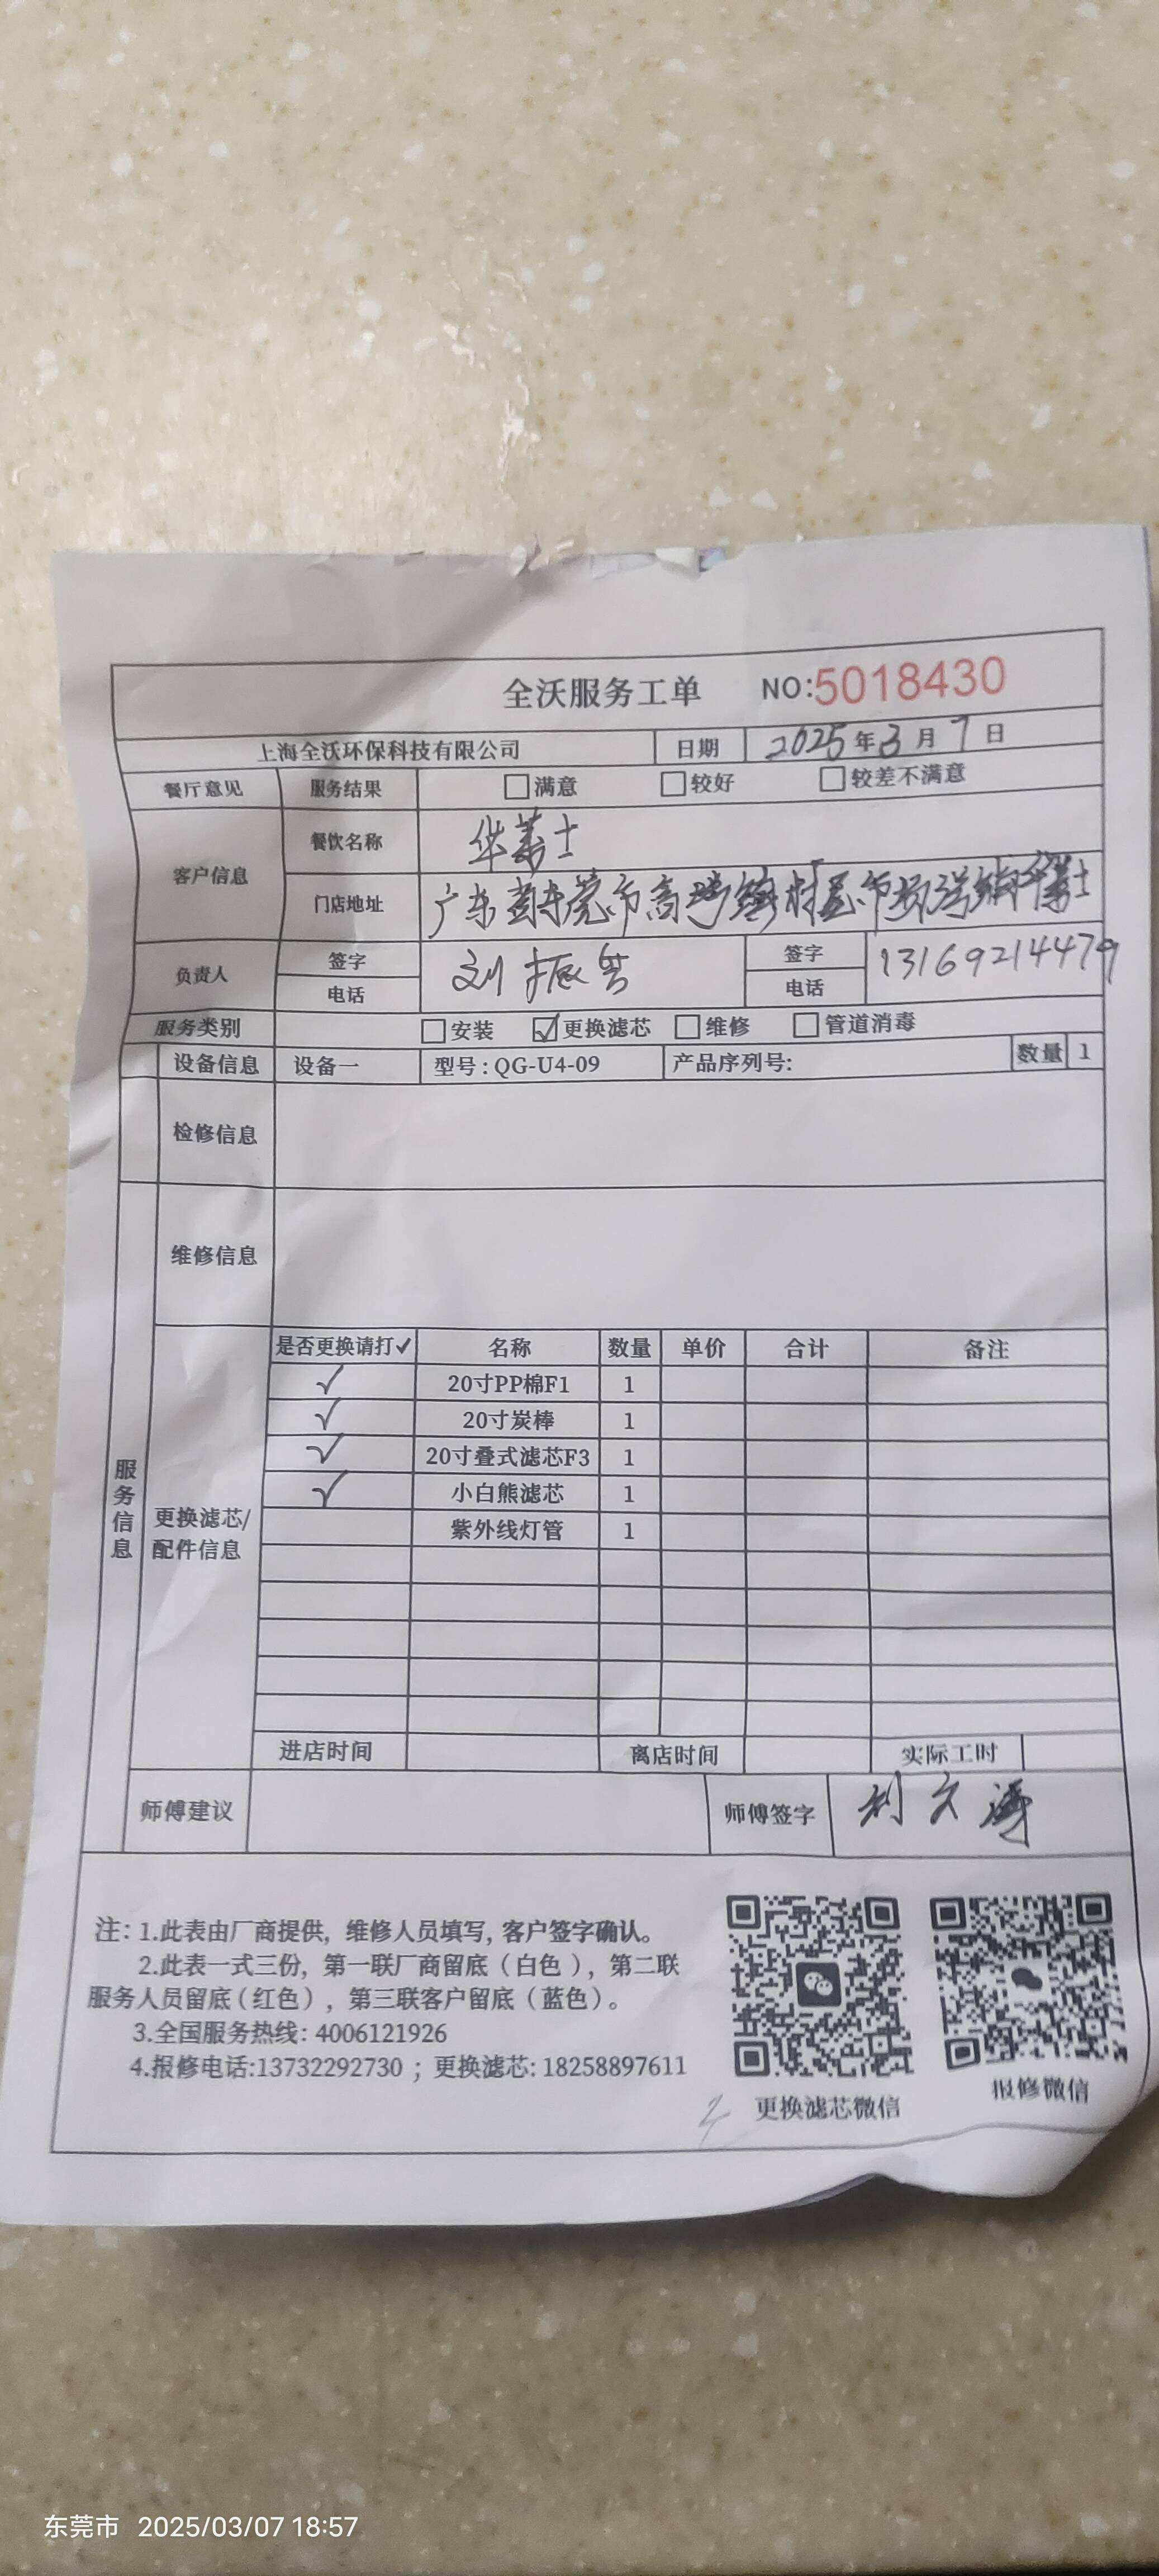 全沃服务工单 NO:5018430
上海全沃环保科技有限公司 日期 2025年3月7日
餐厅意见 服务结果 □满意 □较好 □较差不满意
客户信息 餐饮名称 华莱士
门店地址 广东 东莞市高埗镇 市场 华莱士
负责人 签字 电话 刘振 签字 电话 13169214479
服务类别 □安装 ☑更换滤芯 □维修 □管道消毒
设备信息 设备一 型号:QG-U4-09 产品序列号: 数量 1
检修信息
维修信息
服务信息
更换滤芯/配件信息
是否更换请打✓ 名称 数量 单价 合计 备注
✓ 20寸PP棉F1 1
✓ 20寸炭棒 1
✓ 20寸叠式滤芯F3 1
✓ 小白熊滤芯 1
紫外线灯管 1
进店时间 离店时间 实际工时
师傅建议 师傅签字 刘文涛
注: 1.此表由厂商提供, 维修人员填写, 客户签字确认。
2.此表一式三份, 第一联厂商留底（白色）, 第二联
服务人员留底（红色）, 第三联客户留底（蓝色）。
3.全国服务热线: 4006121926
4.报修电话:13732292730 ; 更换滤芯: 18258897611
更换滤芯微信 报修微信
东莞市 2025/03/07 18:57